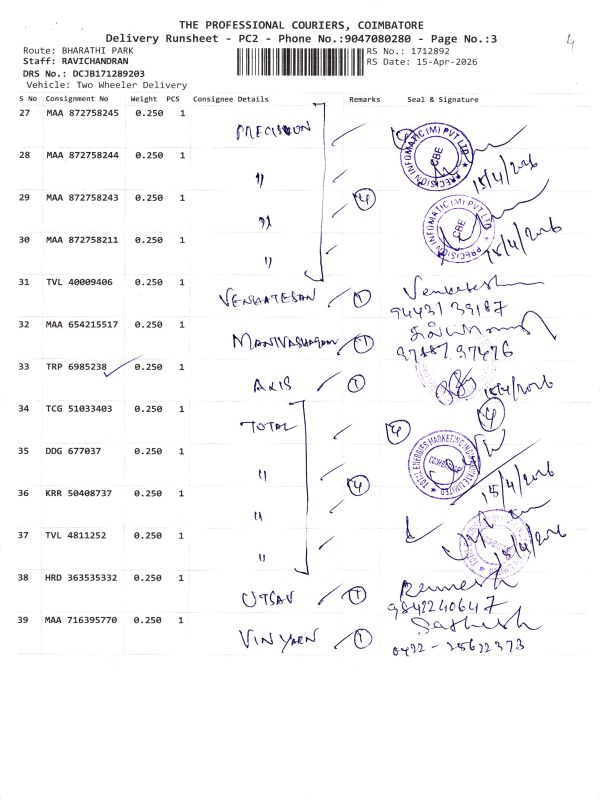 THE PROFESSIONAL COURIERS, COIMBATORE
Delivery Runsheet - PC2 - Phone No.:9047080280 - Page No.:3
4
Route: BHARATHI PARK
RS No.: 1712892
Staff: RAVICHANDRAN
RS Date: 15-Apr-2026
DRS No.: DCJB171289203
Vehicle: Two Wheeler Delivery
S No Consignment No Weight PCS Consignee Details Remarks Seal & Signature
27 MAA 872758245 0.250 1
PRECISION
PRECISION INFOMATIC (M) PVT LTD
CBE
15/4/2026
28 MAA 872758244 0.250 1
"
29 MAA 872758243 0.250 1
" 4
PRECISION INFOMATIC (M) PVT LTD
CBE
15/4/2026
30 MAA 872758211 0.250 1
"
31 TVL 40009406 0.250 1
VENKATESAN 1
94431 39187
32 MAA 654215517 0.250 1
MANIVASHAGAM 1
97887 97476
33 TRP 6985238 0.250 1
AXIS 1
15/4/2026
34 TCG 51033403 0.250 1
4
TOTAL
4
35 DDG 677037 0.250 1
"
TOTAL ENERGIES MARKETING INDIA PRIVATE LIMITED
COIMBATORE
4
15/4/2026
36 KRR 50408737 0.250 1
"
37 TVL 4811252 0.250 1
"
15/4/2026
38 HRD 363535332 0.250 1
UTSAV 1
Ramesh
9842240647
39 MAA 716395770 0.250 1
VINYARN 1
Sathish
0422-25622373